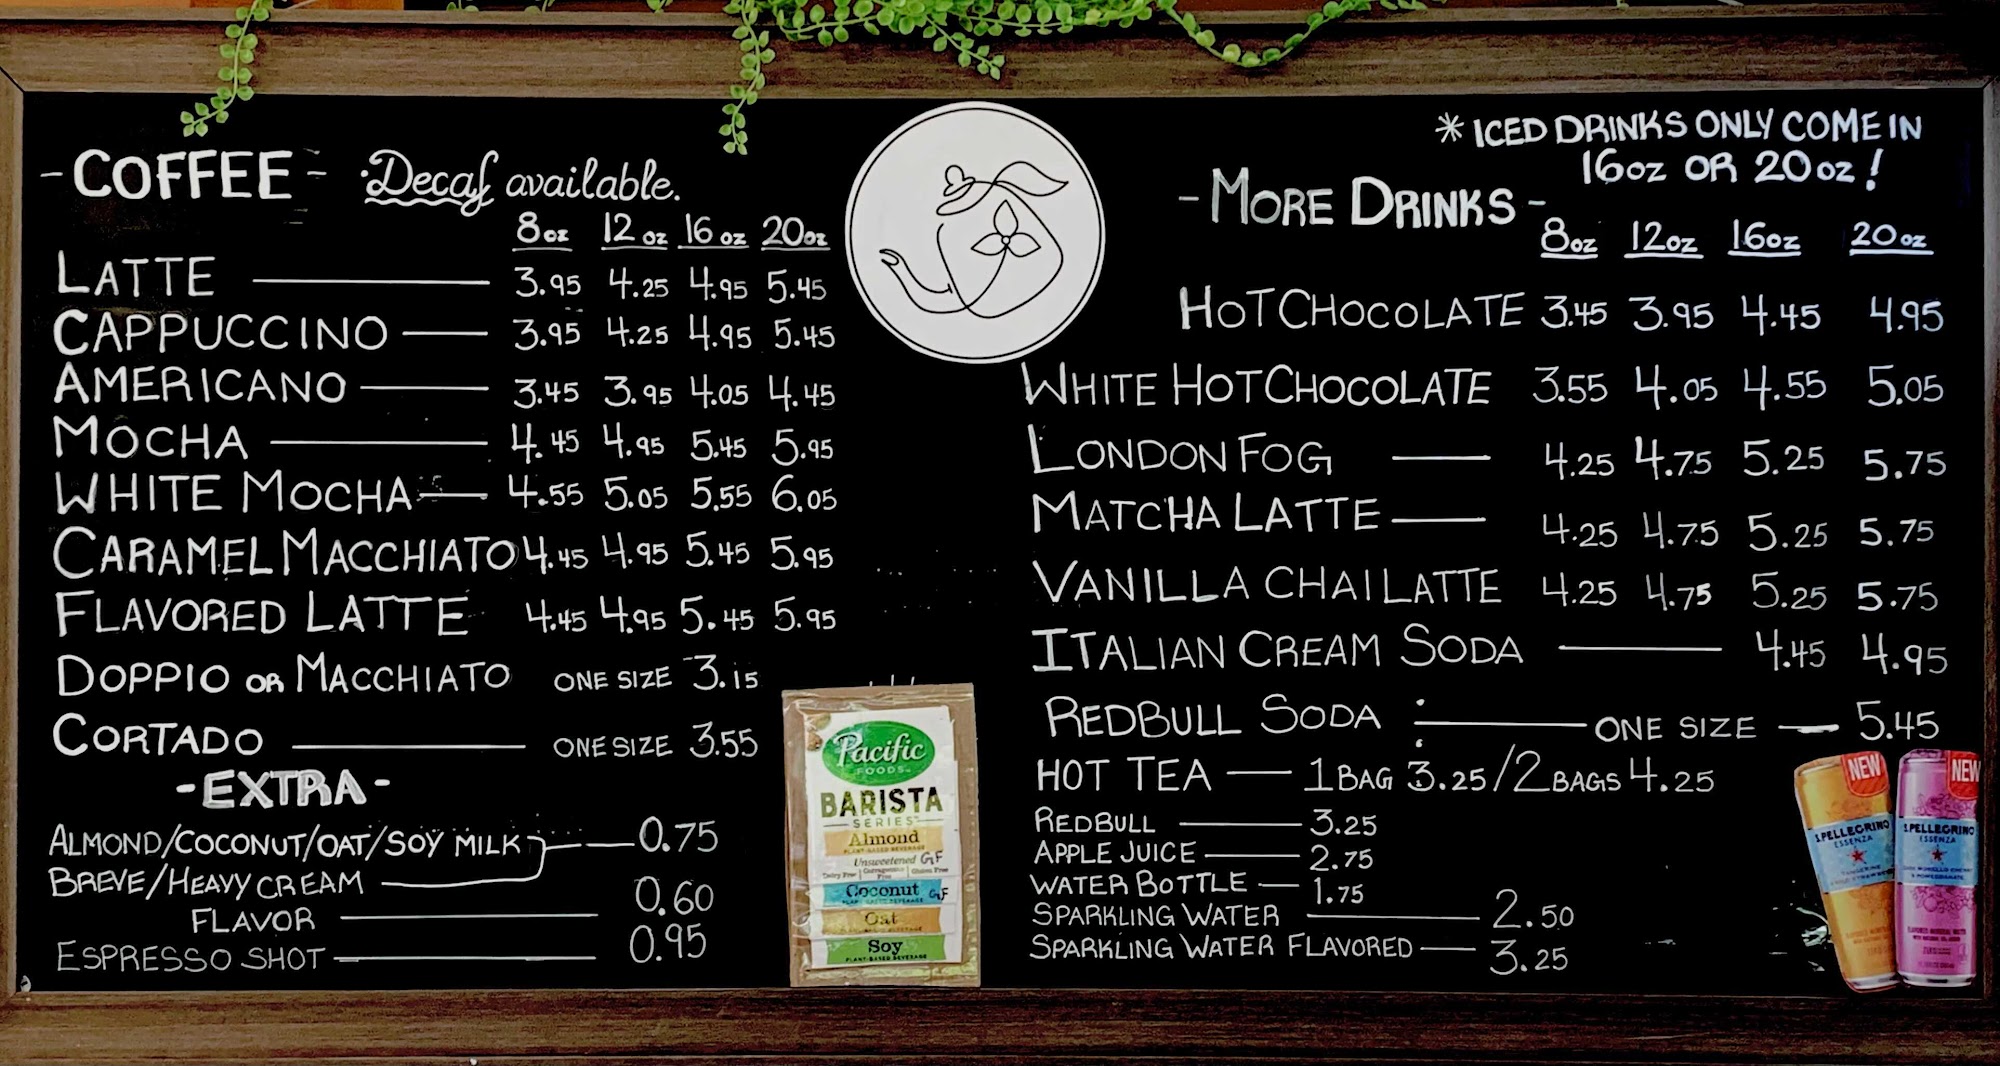 - COFFEE - Decaf available.
8oz 12oz 16oz 20oz
LATTE 3.95 4.25 4.95 5.45
CAPPUCCINO 3.95 4.25 4.95 5.45
AMERICANO 3.45 3.95 4.05 4.45
MOCHA 4.45 4.95 5.45 5.95
WHITE MOCHA 4.55 5.05 5.55 6.05
CARAMEL MACCHIATO 4.45 4.95 5.45 5.95
FLAVORED LATTE 4.45 4.95 5.45 5.95
DOPPIO OR MACCHIATO ONE SIZE 3.15
CORTADO ONE SIZE 3.55
- EXTRA -
ALMOND/COCONUT/OAT/SOY MILK 0.75
BREVE/HEAVY CREAM
FLAVOR 0.60
ESPRESSO SHOT 0.95
Pacific
FOODS
BARISTA
SERIES
Almond
PLANT-BASED BEVERAGE
Unsweetened GF
Dairy Free Carrageenan Free Gluten Free
Coconut GF
PLANT-BASED BEVERAGE
Oat
Soy
PLANT-BASED BEVERAGE
* ICED DRINKS ONLY COME IN
16oz OR 20oz!
- MORE DRINKS -
8oz 12oz 16oz 20oz
HOT CHOCOLATE 3.45 3.95 4.45 4.95
WHITE HOT CHOCOLATE 3.55 4.05 4.55 5.05
LONDON FOG 4.25 4.75 5.25 5.75
MATCHA LATTE 4.25 4.75 5.25 5.75
VANILLA CHAI LATTE 4.25 4.75 5.25 5.75
ITALIAN CREAM SODA 4.45 4.95
REDBULL SODA ONE SIZE 5.45
HOT TEA 1 BAG 3.25/2 BAGS 4.25
REDBULL 3.25
APPLE JUICE 2.75
WATER BOTTLE 1.75
SPARKLING WATER 2.50
SPARKLING WATER FLAVORED 3.25
NEW
S.PELLEGRINO
ESSENZA
TANGERINE
NEW
S.PELLEGRINO
ESSENZA
DARK MORELLO CHERRY
& POMEGRANATE